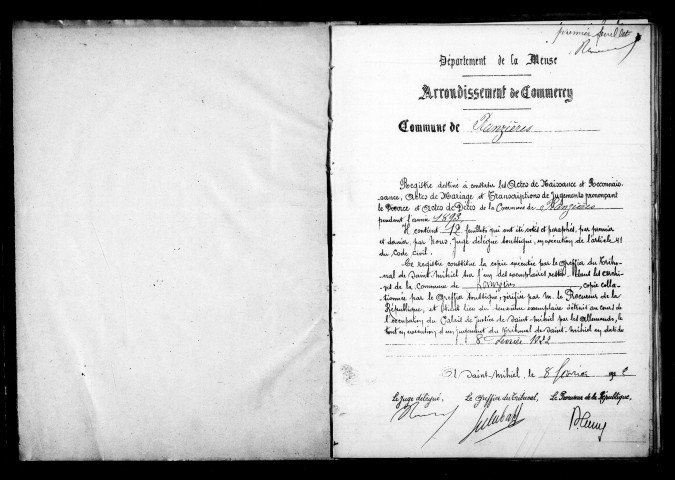 premier feuillet
Département de la Meuse
Arrondissement de Commercy
Commune de Ranzières
Registre destiné à contenir les Actes de Naissance et Reconnais-
sance, Actes de Mariage et Transcriptions de Jugements prononçant
le Divorce et Actes de Décès de la Commune de Ranzières
pendant l'année 1893.
Il contient 12 feuillets qui ont été cotés et paraphés, par premier
et dernier, par Nous, Juge délégué soussigné, en exécution de l'article 41
du Code civil.
Ce registre constitue la copie exécutée par le Greffier du Tribu-
nal de Saint-Mihiel sur l'un des exemplaires resté dans les archi-
ves de la commune de Ranzières, copie colla-
tionnée par le Greffier soussigné, vérifiée par M. le Procureur de la
République, et tient lieu du deuxième exemplaire détruit au cours de
l'occupation du Palais de Justice de Saint-Mihiel par les Allemands, le
tout en exécution d'un jugement du Tribunal de Saint-Mihiel en date du
8 Février 1922
A Saint-Mihiel, le 8 février 1922
Le Juge délégué, Le Greffier du Tribunal, Le Procureur de la République,